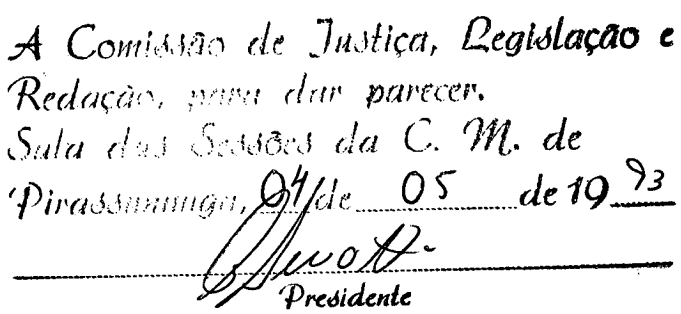 A Comissão de Justiça, Legislação e
Redação, para dar parecer.
Sala das Sessões da C. M. de
Pirassununga, 04 de 05 de 19 93
Presidente